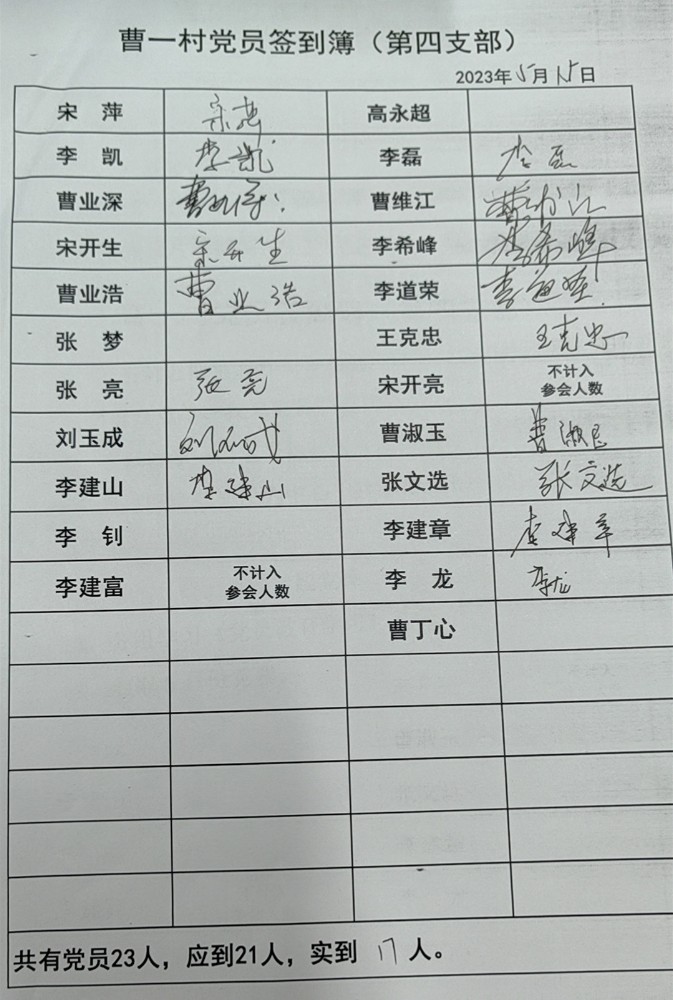 曹一村党员签到簿（第四支部）
2023年5月15日
宋 萍 宋萍 高永超
李 凯 李凯 李磊 李磊
曹业深 曹业深 曹维江 曹维江
宋开生 宋开生 李希峰 李希峰
曹业浩 曹业浩 李道荣 李道荣
张 梦 王克忠 王克忠
张 亮 张亮 宋开亮 不计入
参会人数
刘玉成 刘玉成 曹淑玉 曹淑玉
李建山 李建山 张文选 张文选
李 钊 李建章 李建章
李建富 不计入
参会人数 李 龙 李龙
曹丁心
共有党员23人，应到21人，实到 17 人。